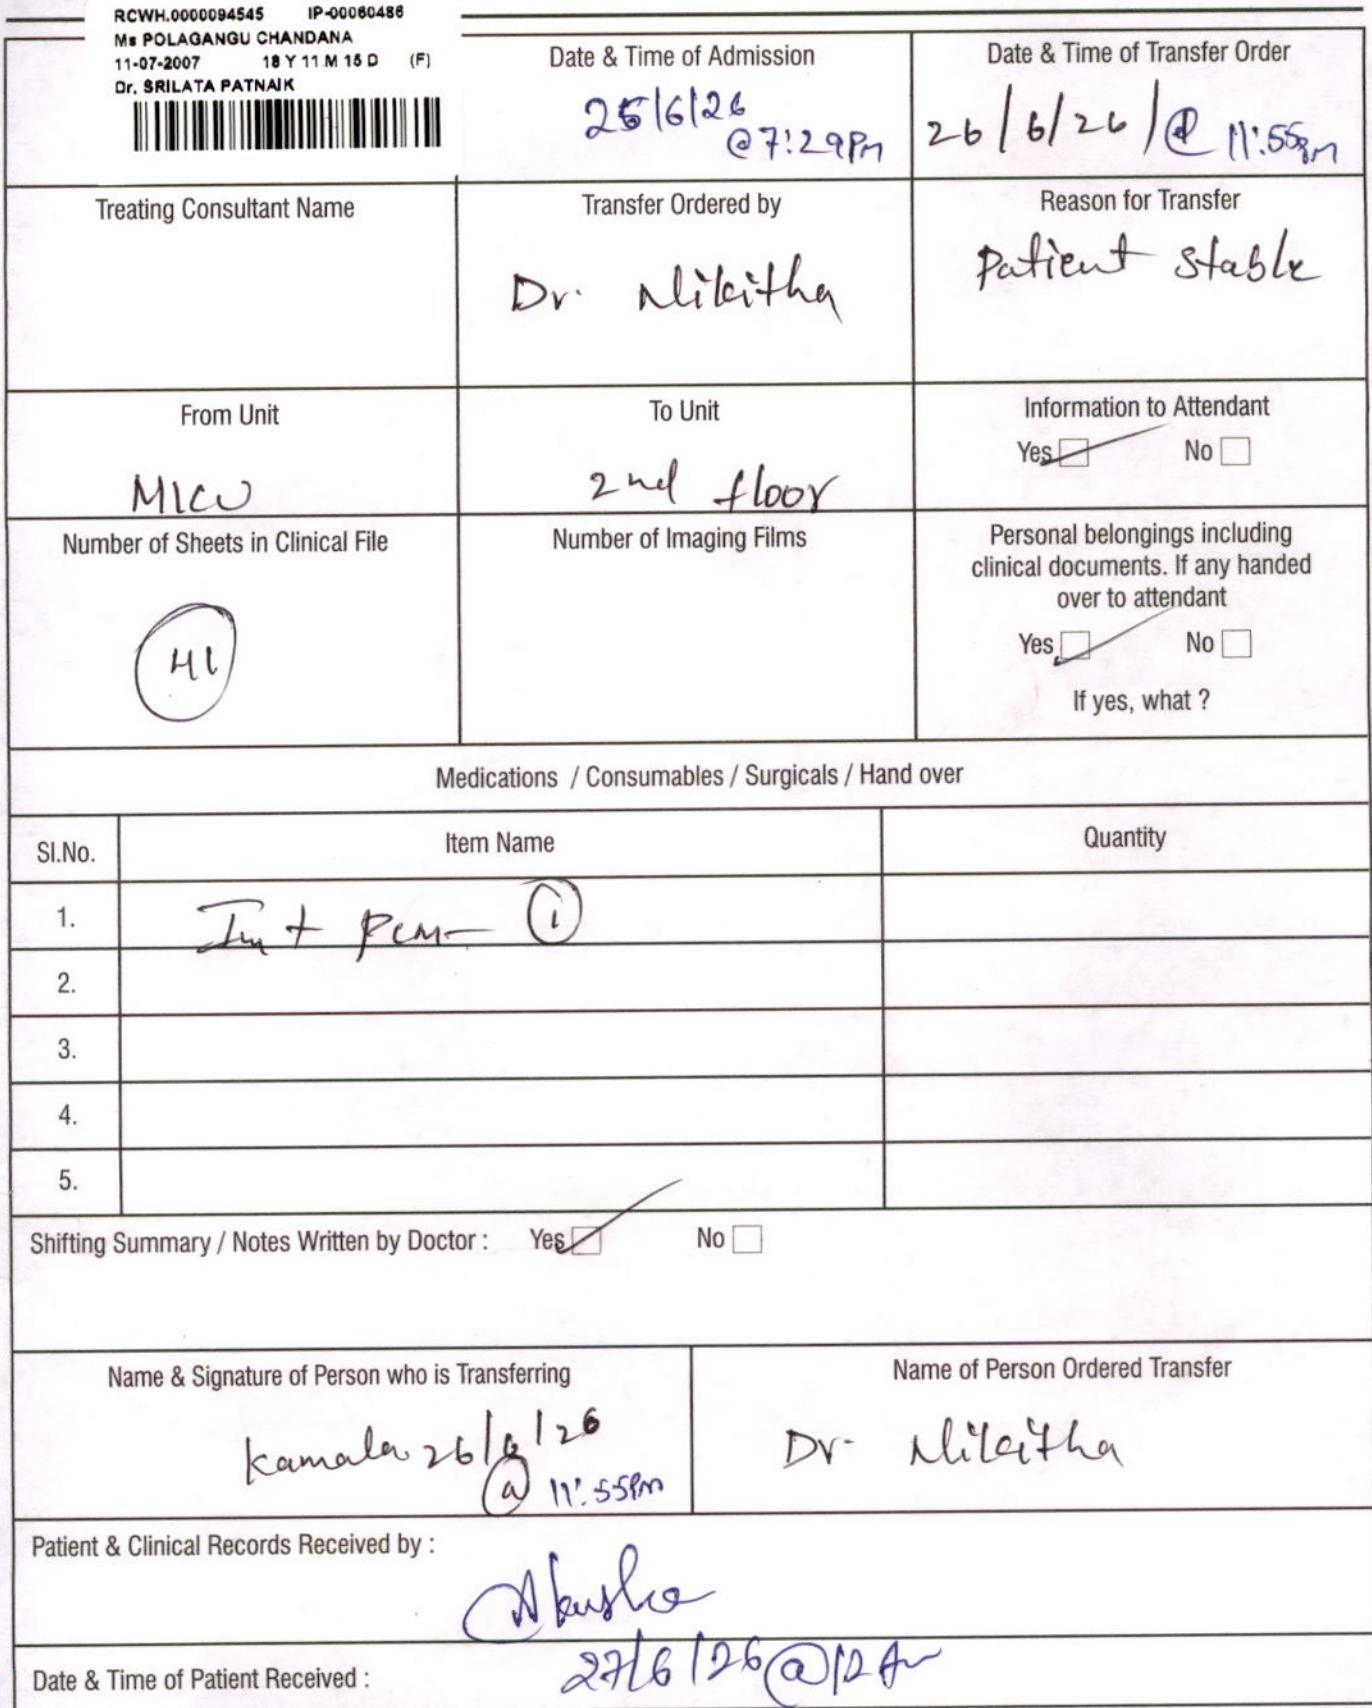 RCWH.0000094545 IP-00060486
Ms POLAGANGU CHANDANA
11-07-2007 18 Y 11 M 15 D (F)
Dr. SRILATA PATNAIK
Date & Time of Admission
25/6/26
@ 7:29 Pm
Date & Time of Transfer Order
26/6/26/@ 11:55pm
Treating Consultant Name
Transfer Ordered by
Dr. Nikitha
Reason for Transfer
Patient stable
From Unit
MICU
To Unit
2nd floor
Information to Attendant
Yes No
Number of Sheets in Clinical File
41
Number of Imaging Films
Personal belongings including
clinical documents. If any handed
over to attendant
Yes No
If yes, what ?
Medications / Consumables / Surgicals / Hand over
Sl.No. Item Name Quantity
1. PCM - 1
2.
3.
4.
5.
Shifting Summary / Notes Written by Doctor : Yes No
Name & Signature of Person who is Transferring
Kamala 26/6/26
@ 11:55Pm
Name of Person Ordered Transfer
Dr. Nikitha
Patient & Clinical Records Received by :
Date & Time of Patient Received : 27/6/26 @ 12 Am